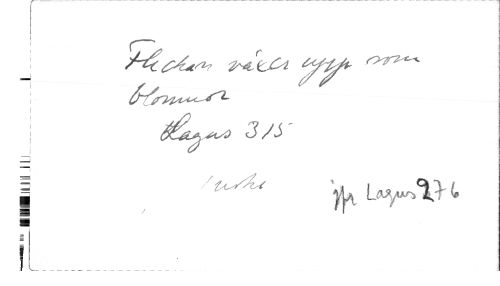 Flickan växer upp som
blommor
Lagus 315
jfr Lagus 276